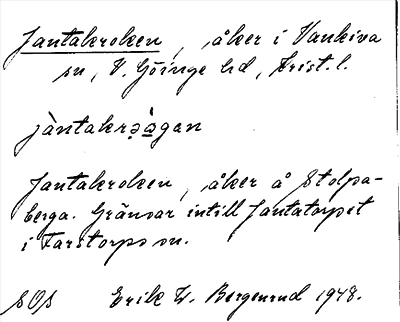 Jantakroken, åker i Vankiva
sn, V. Göinge hd, Krist. l.
jàntakrǝ̀ågan
Jantakroken, åker å Stolpa-
berga. Gränsar intill Jantatorpet
i Farstorps sn.
Erik W. Bergenrud 1948.